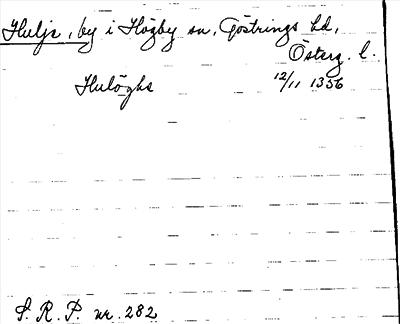 Hulje, by i Högby sn, Göstrings hd,
Österg. l.
Hulöghs 12/11 1356
S. R. P. nr. 282